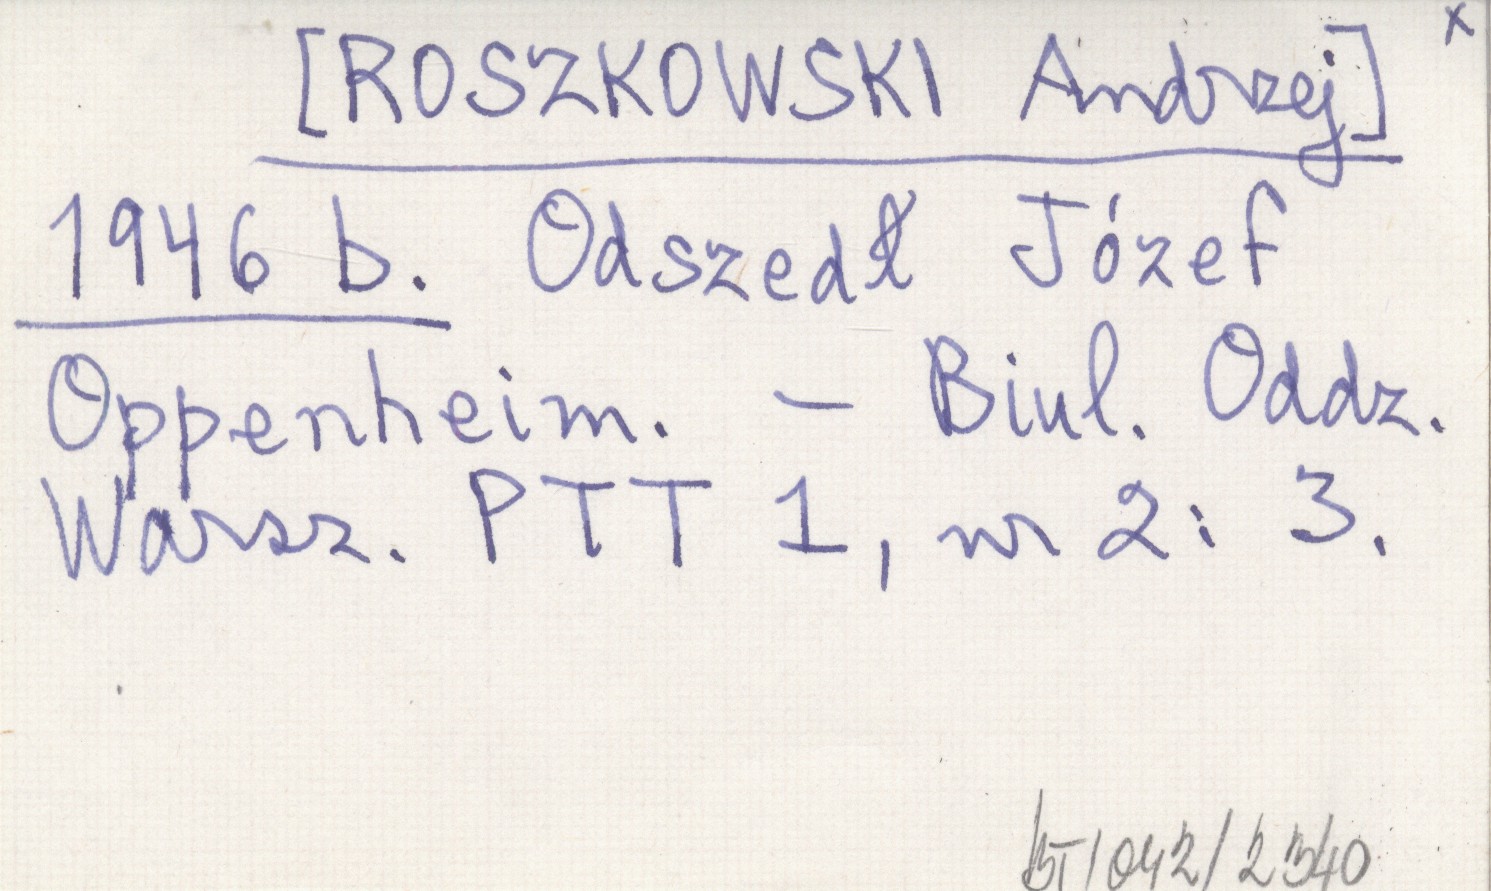 x
[ROSZKOWSKI Andrzej]
1946 b. Odszedł Józef
Oppenheim. – Biul. Oddz.
Warsz. PTT 1, nr 2: 3.
BT/042/2340